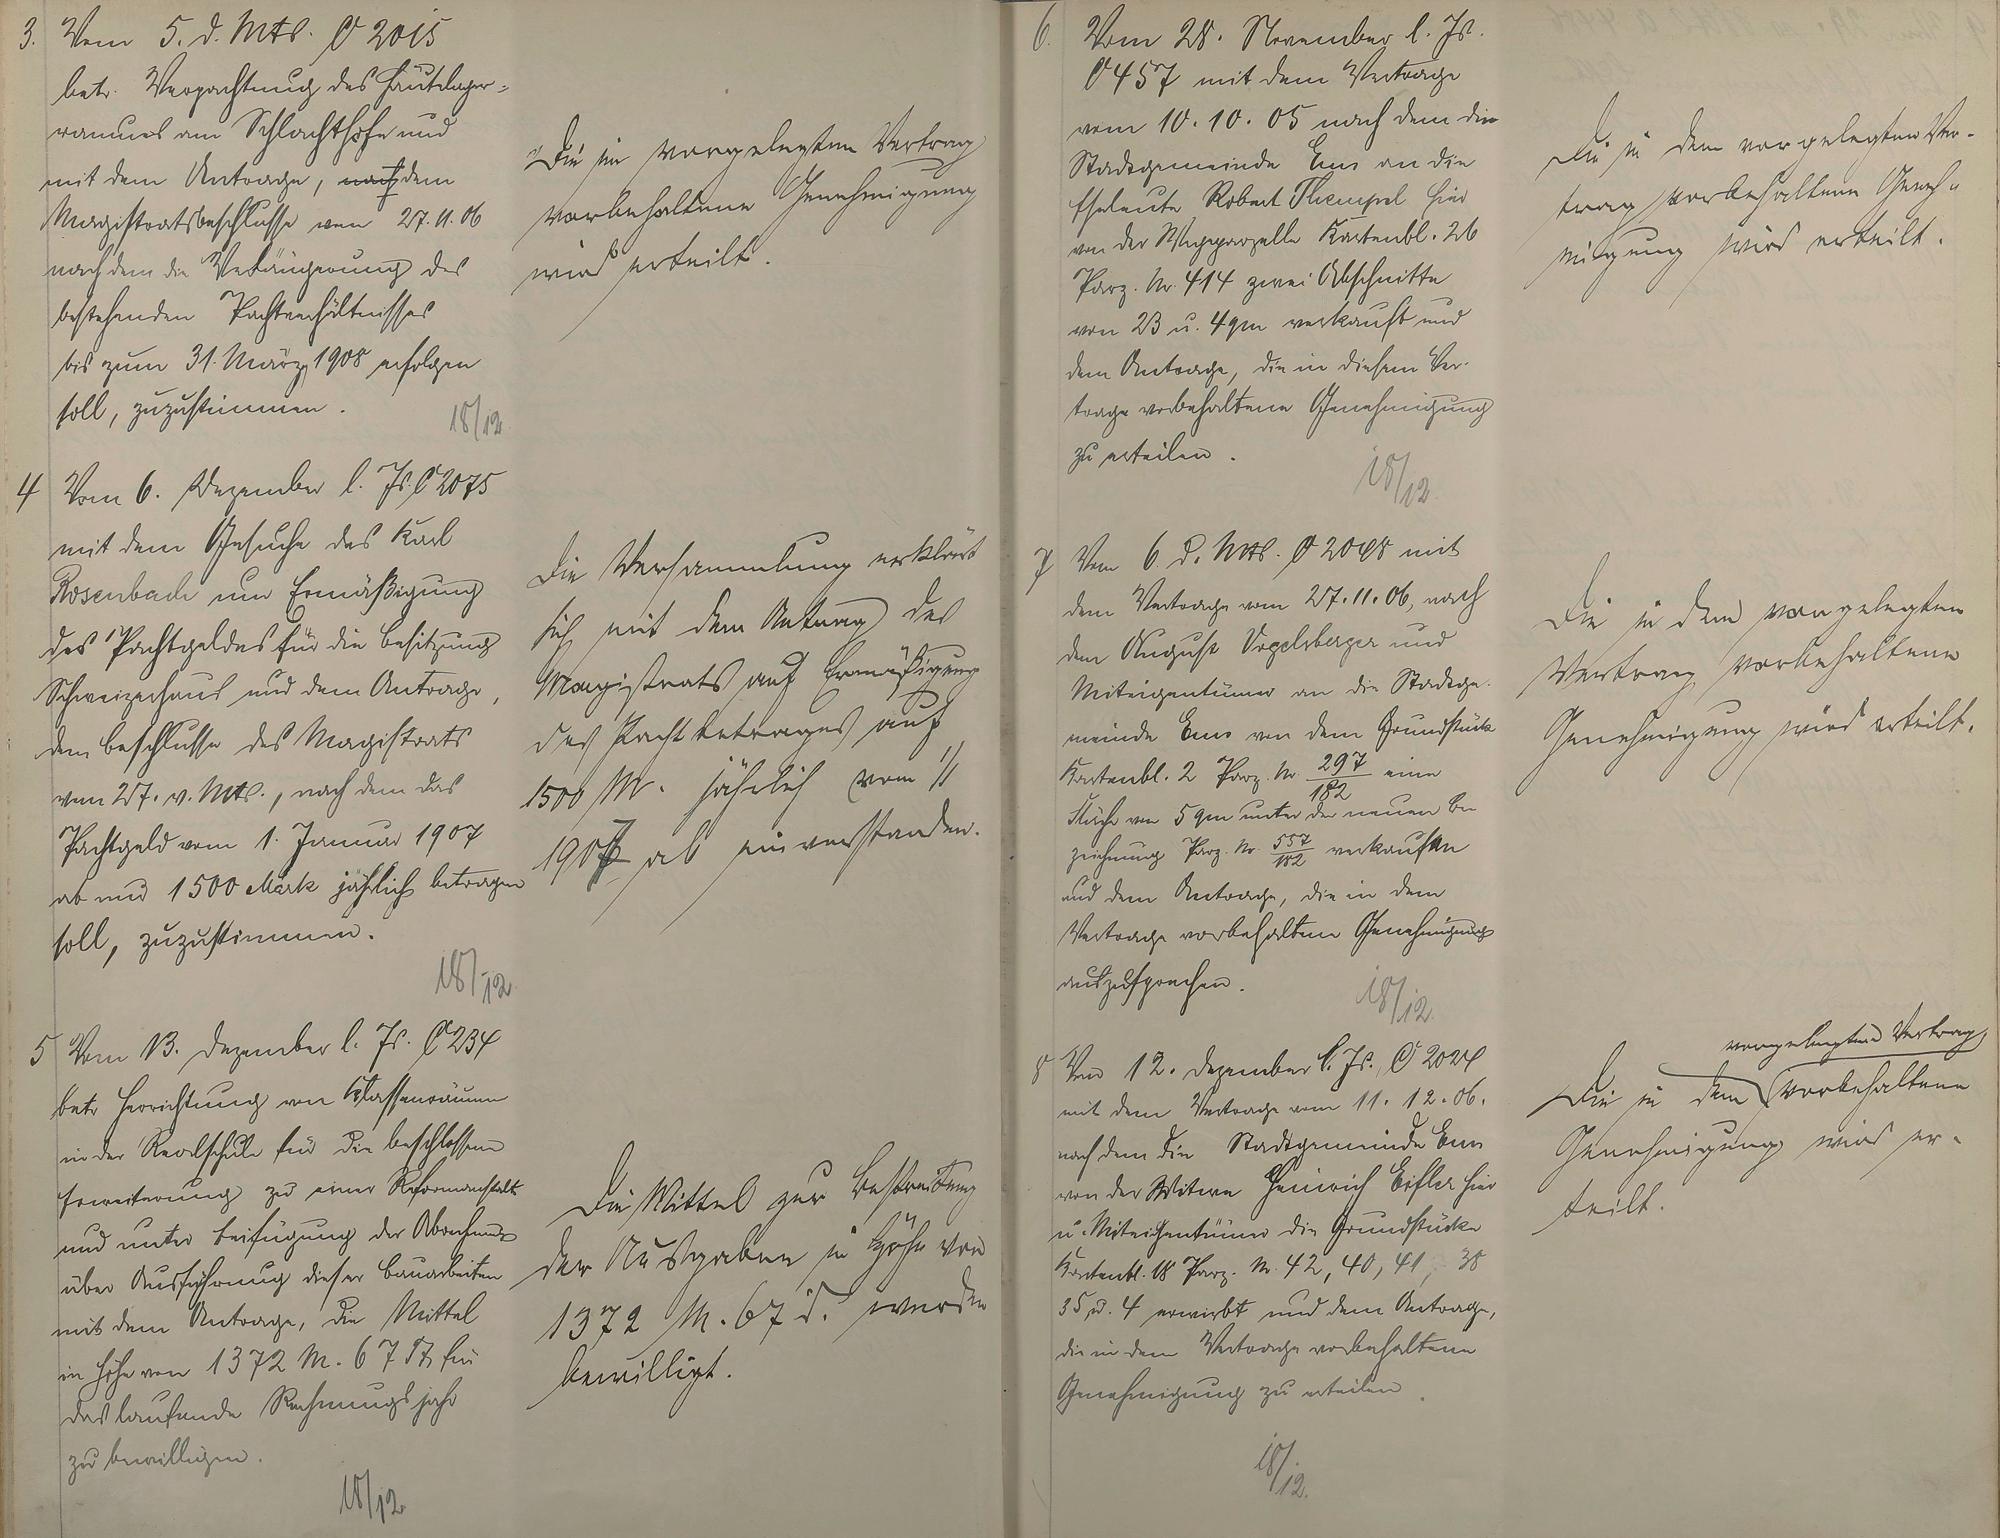 3. Vom 5. d. Mts. C 2015
betr. Verpachtung des Häutelager-
raumes am Schlachthofe und
mit dem Antrage, nach dem
Magistratsbeschlusse vom 27.11.06
nach dem die Verlängerung des
bestehenden Pachtverhältnisses
bis zum 31. März 1908 erfolgen
soll, zuzustimmen.
18/12
Die im vorgelegten Vertrag
vorbehaltene Genehmigung
wird erteilt.
4 Vom 6. Dezember l. Js. C 2075
mit dem Gesuche des Karl
Rosenbach um Ermäßigung
des Pachtgeldes für die Besitzung
Schweizerhaus und dem Antrage,
dem Beschlusse des Magistrats
vom 27. v. Mts., nach dem das
Pachtgeld vom 1. Januar 1907
ab nur 1500 Mark jährlich betragen
soll, zuzustimmen.
18/12
Die Versammlung erklärt
sich mit dem Antrag des
Magistrats auf Ermäßigung
des Pachtbetrages auf
1500 M. jährlich vom 1/1
1907 ab einverstanden.
5 Vom 13. Dezember l. Js. C 234
betr. Herrichtung von Klassenräumen
in der Realschule für die beschlossene
Erweiterung zu einer Reformanstalt
und unter Beifügung der
über Ausführung dieser Bauarbeiten
mit dem Antrage, die Mittel
in Höhe von 1372 M. 67 Pf. für
das laufende Rechnungsjahr
zu bewilligen.
18/12
Die Mittel zur Bestreitung
der Ausgaben in Höhe von
1372 M. 67 d. werden
bewilligt.
6. Vom 28. November l. Js.
C 457 mit dem Vertrage
vom 10.10.05 nach dem die
Stadtgemeinde Ems an die
Eheleute Robert Thempel hier
von der Wegeparzelle Kartenbl. 26
Parz. Nr. 414 zwei Abschnitte
von 23 u. 4 qm verkauft und
dem Antrage, die in diesem Ver-
trage vorbehaltene Genehmigung
zu erteilen.
18/12.
Die in dem vorgelegten Ver-
trag vorbehaltene Geneh-
migung wird erteilt.
7 Vom 6. d. Mts. C 2048 mit
dem Vertrage vom 27.11.06, nach
dem August Vogelsberger und
Miteigentümer an die Stadtge-
meinde Ems von dem Grundstück
Kartenbl. 2 Parz. Nr. 297/182 eine
Fläche von 5 qm unter der neuen Be-
zeichnung Parz. Nr. 557/182 verkaufen
und dem Antrage, die in dem
Vertrage vorbehaltene Genehmigung
auszusprechen.
18/12.
Die in dem vorgelegten
Vertrag vorbehaltene
Genehmigung wird erteilt.
8 Vom 12. Dezember l. Js. C 2024
mit dem Vertrage vom 11.12.06.
nach dem die Stadtgemeinde Ems
von der Witwe Heinrich Eifler hier
u. Miteigentümer die Grundstücke
Kartenbl. 18 Parz. Nr. 42, 40, 41, 38
35 u. 4 erwirbt und dem Antrage,
die in dem Vertrage vorbehaltene
Genehmigung zu erteilen.
18/12.
vorgelegten Vertrag
Die in dem vorbehaltene
Genehmigung wird er-
teilt.